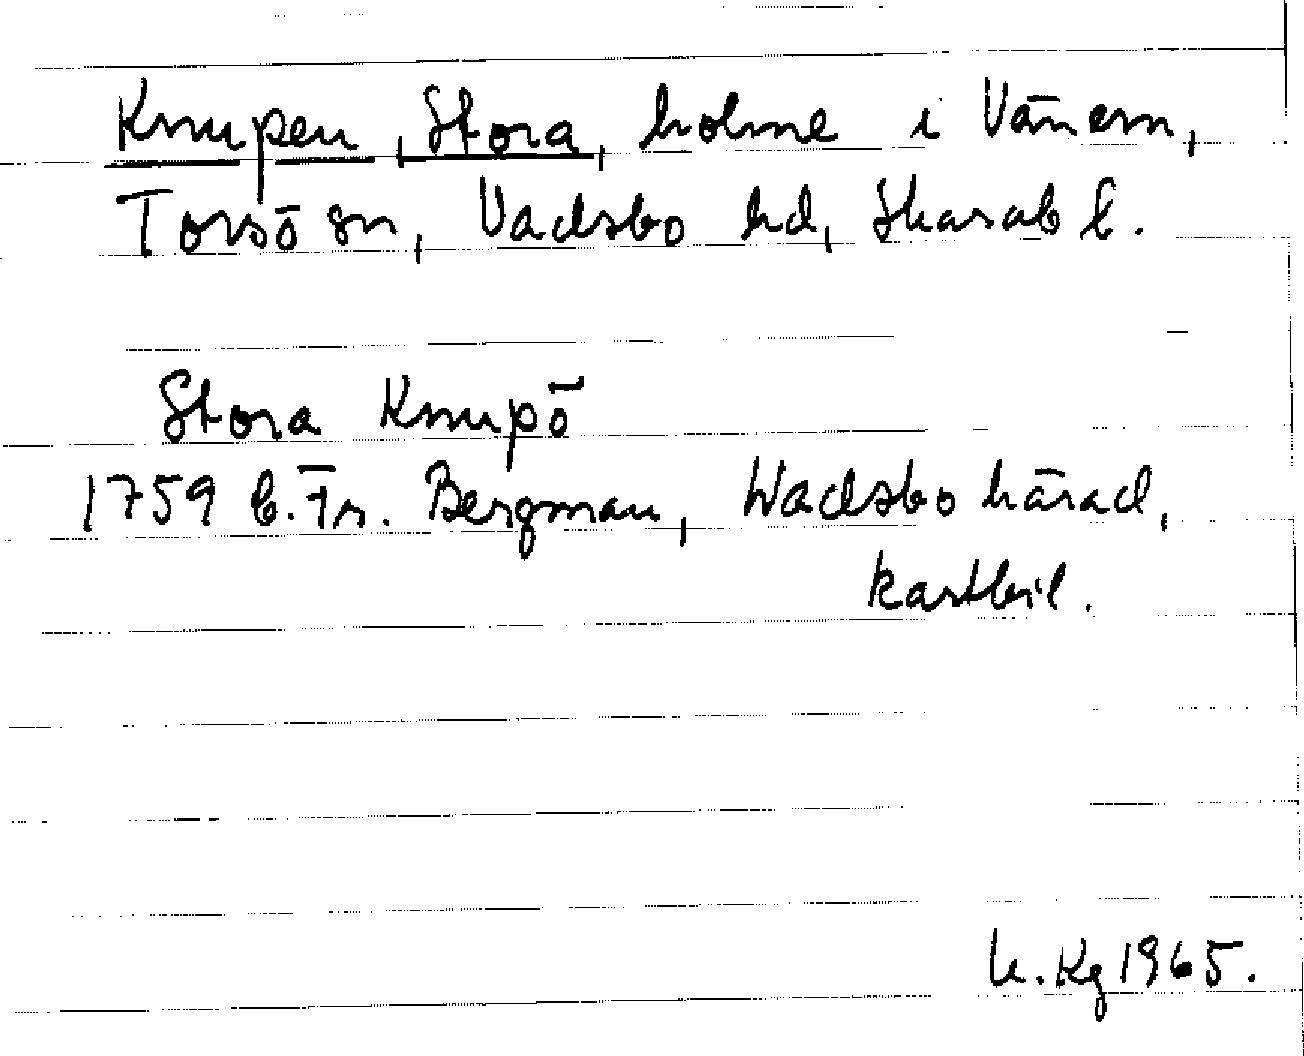 Knupen, Stora, holme i Vänern,
Torsö sn, Vadsbo hd, Skarab l.
Stora Knupö
1759 b. Fr. Bergman, Wadsbo härad,
kartbil.
K. Kg 1965.